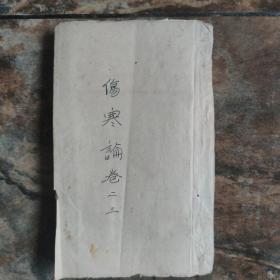 傷寒論卷二三